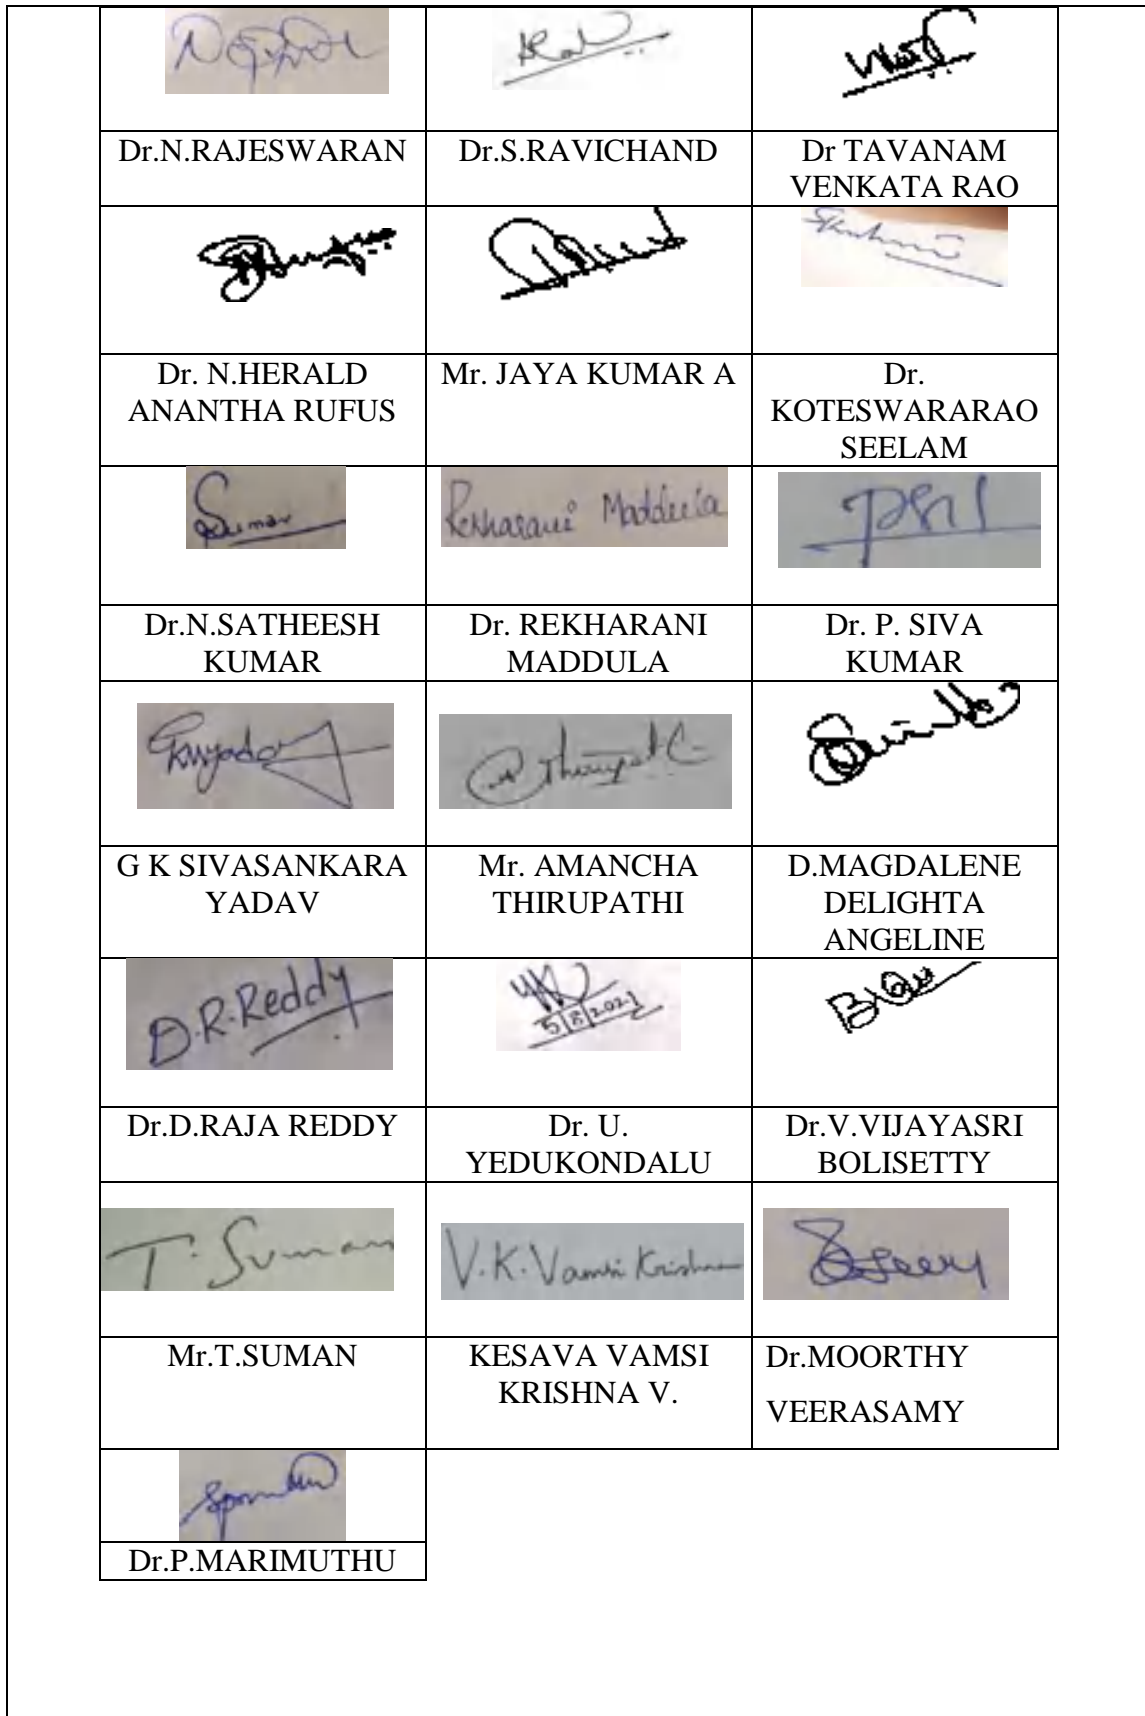 Dr.N.RAJESWARAN
Dr.S.RAVICHAND
Dr TAVANAM
VENKATA RAO
Dr. N.HERALD
ANANTHA RUFUS
Mr. JAYA KUMAR A
Dr.
KOTESWARARAO
SEELAM
Kumar
Rekharani Maddula
Dr.N.SATHEESH
KUMAR
Dr. REKHARANI
MADDULA
Dr. P. SIVA
KUMAR
G K SIVASANKARA
YADAV
Mr. AMANCHA
THIRUPATHI
D.MAGDALENE
DELIGHTA
ANGELINE
D.R.Reddy
5|8|2021
Dr.D.RAJA REDDY
Dr. U.
YEDUKONDALU
Dr.V.VIJAYASRI
BOLISETTY
T. Suman
V.K.Vamsi Krishna
Mr.T.SUMAN
KESAVA VAMSI
KRISHNA V.
Dr.MOORTHY
VEERASAMY
Dr.P.MARIMUTHU